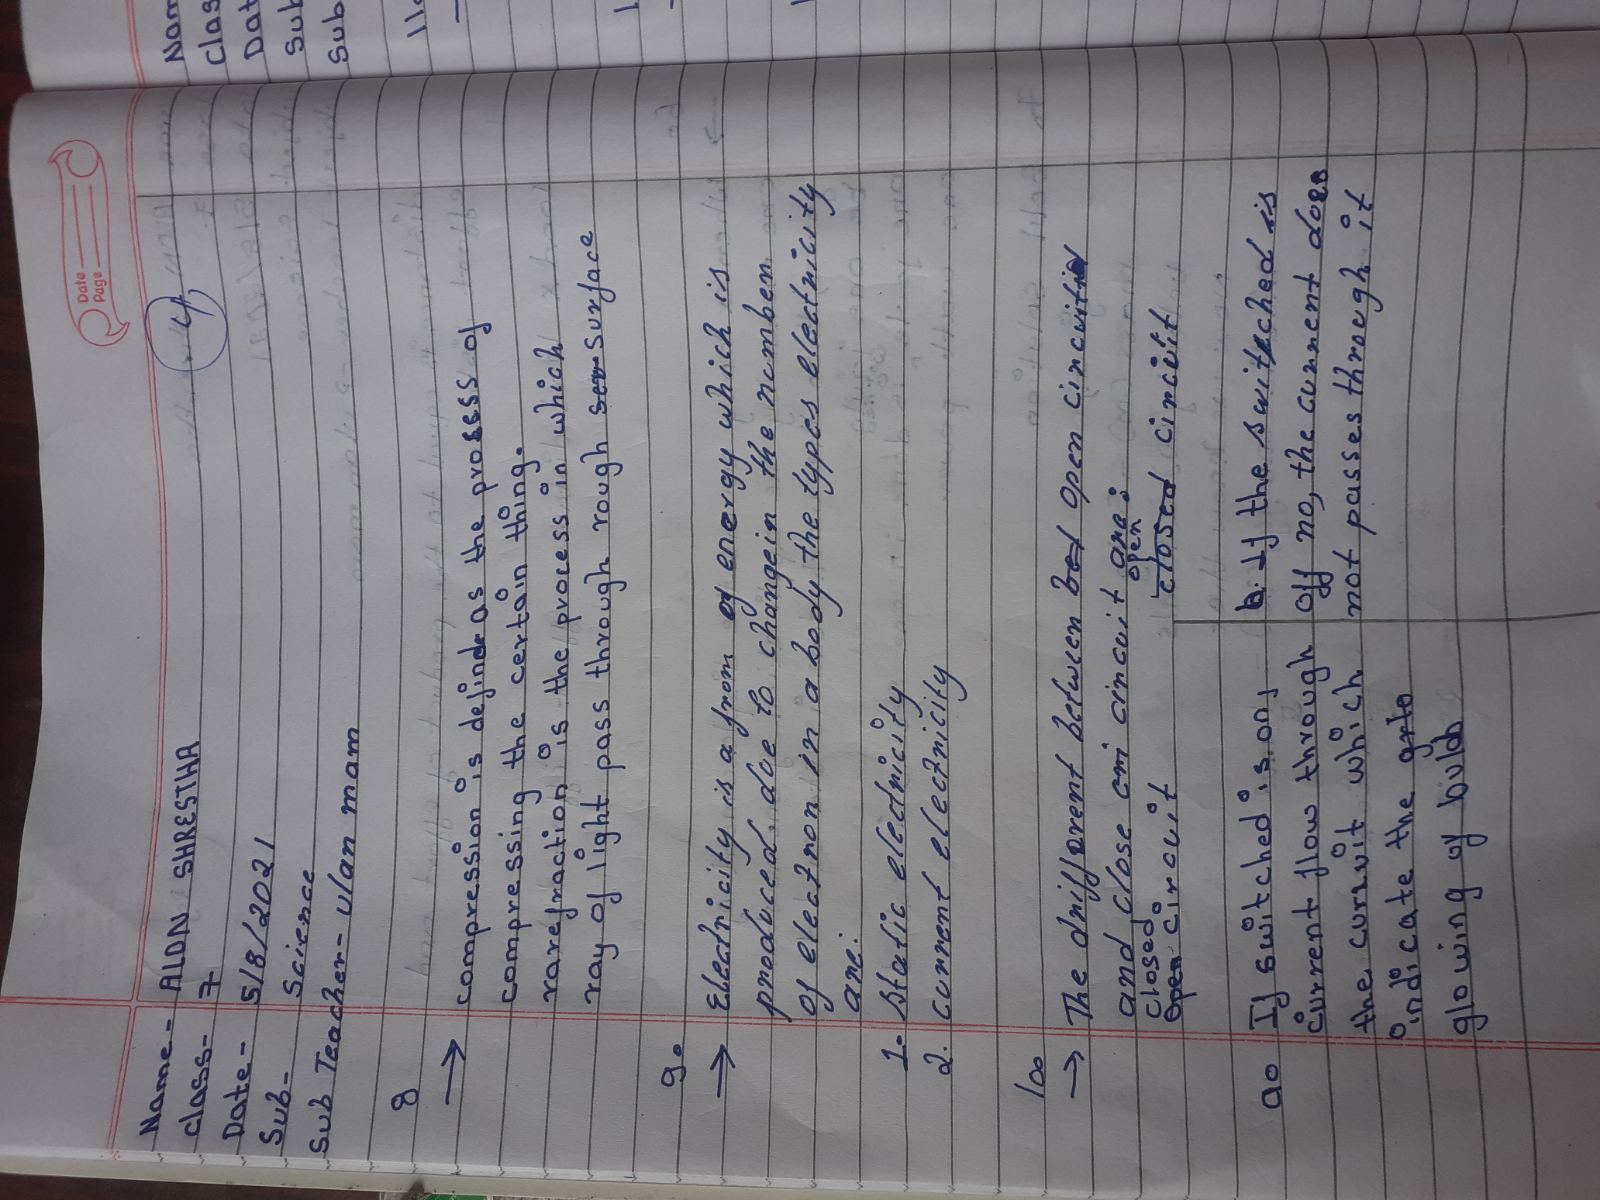 Date
Page
4
Name- AIDN SHRESTHA
class- 7
Date- 5/8/2021
Sub- Science
Sub Teacher- Ulan mam
8
→ compression is defined as the prosess of
compressing the certain thing.
rarefraction is the process in which
ray of light pass through rough surface
9.
→ Electricity is a from of energy which is
produced due to change in the number
of electron in a body the types electricity
are:
1. Static electricity
2. current electricity
10.
→ The different between open circuit
and close circuit are:
closed circuit
open circuit
a. If switched is on,
current flow through
the curcuit which
indicate the
glowing of buldb
b. If the switched is
off no, the current does
not passes through it
Nam
Clas
Dat
Sub
Sub